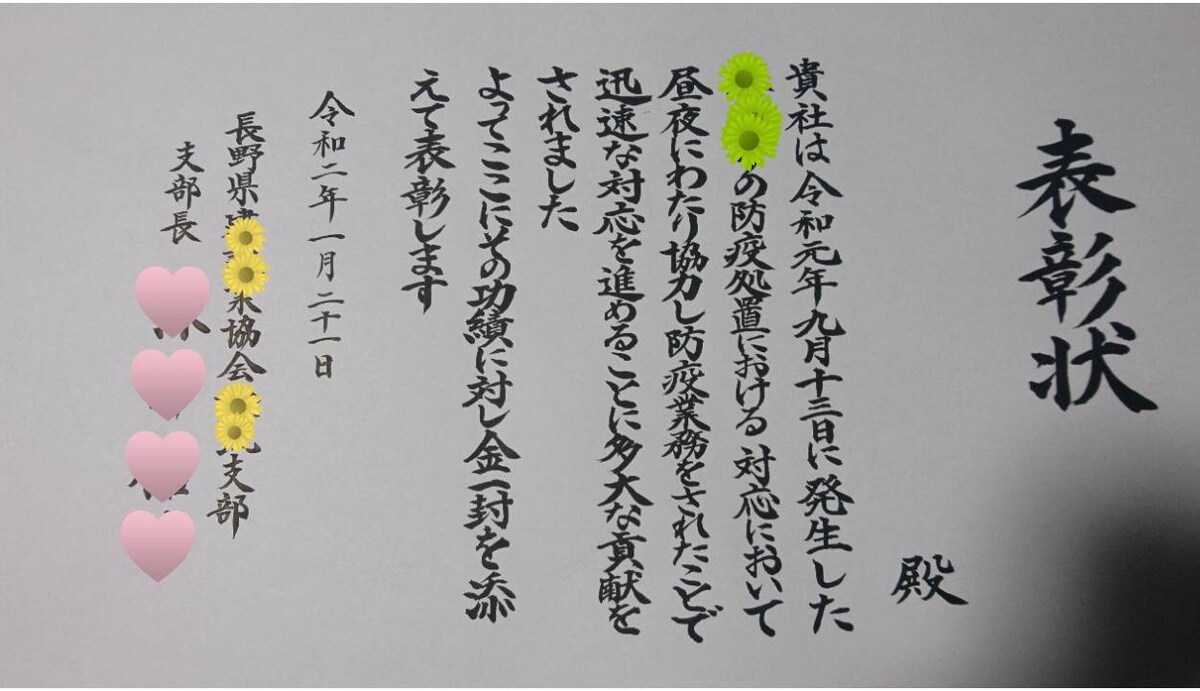 表彰状
殿
貴社は令和元年九月十三日に発生した
の防疫処置における対応において
昼夜にわたり協力し防疫業務をされたことで
迅速な対応を進めることに多大な貢献を
されました
よってここにその功績に対し金一封を添
えて表彰します
令和二年一月二十一日
長野県建 業協会 支部
支部長